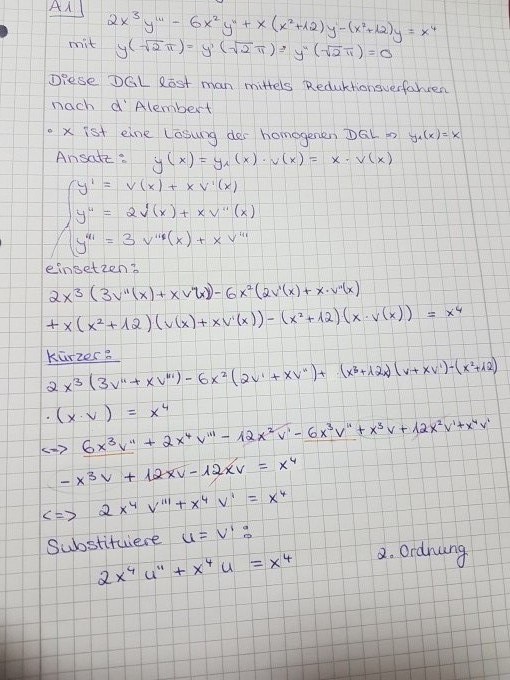 A1
2x³y''' - 6x²y'' + x(x²+12)y' - (x²+12)y = x⁴
mit y(√2π) = y'(√2π) = y''(√2π) = 0
Diese DGL löst man mittels Reduktionsverfahren
nach d'Alembert
• x ist eine Lösung der homogenen DGL ⇒ y₁(x) = x
Ansatz: y(x) = y₁(x) · v(x) = x · v(x)
y' = v(x) + x v'(x)
y'' = 2v'(x) + x v''(x)
y''' = 3 v''(x) + x v'''
einsetzen:
2x³(3v''(x) + xv'''(x)) - 6x²(2v'(x) + x·v''(x)
+ x(x²+12)(v(x) + xv'(x)) - (x²+12)(x·v(x)) = x⁴
Kürzer:
2x³(3v'' + xv''') - 6x²(2v' + xv'') + (x³+12x)(v+xv') - (x²+12)
·(x·v) = x⁴
<=> 6x³v'' + 2x⁴v''' - 12x²v' - 6x³v'' + x³v + 12x²v' + x⁴v'
- x³v + 12xv - 12xv = x⁴
<=> 2x⁴v''' + x⁴v' = x⁴
Substituiere u = v':
2x⁴u'' + x⁴u = x⁴ 2. Ordnung